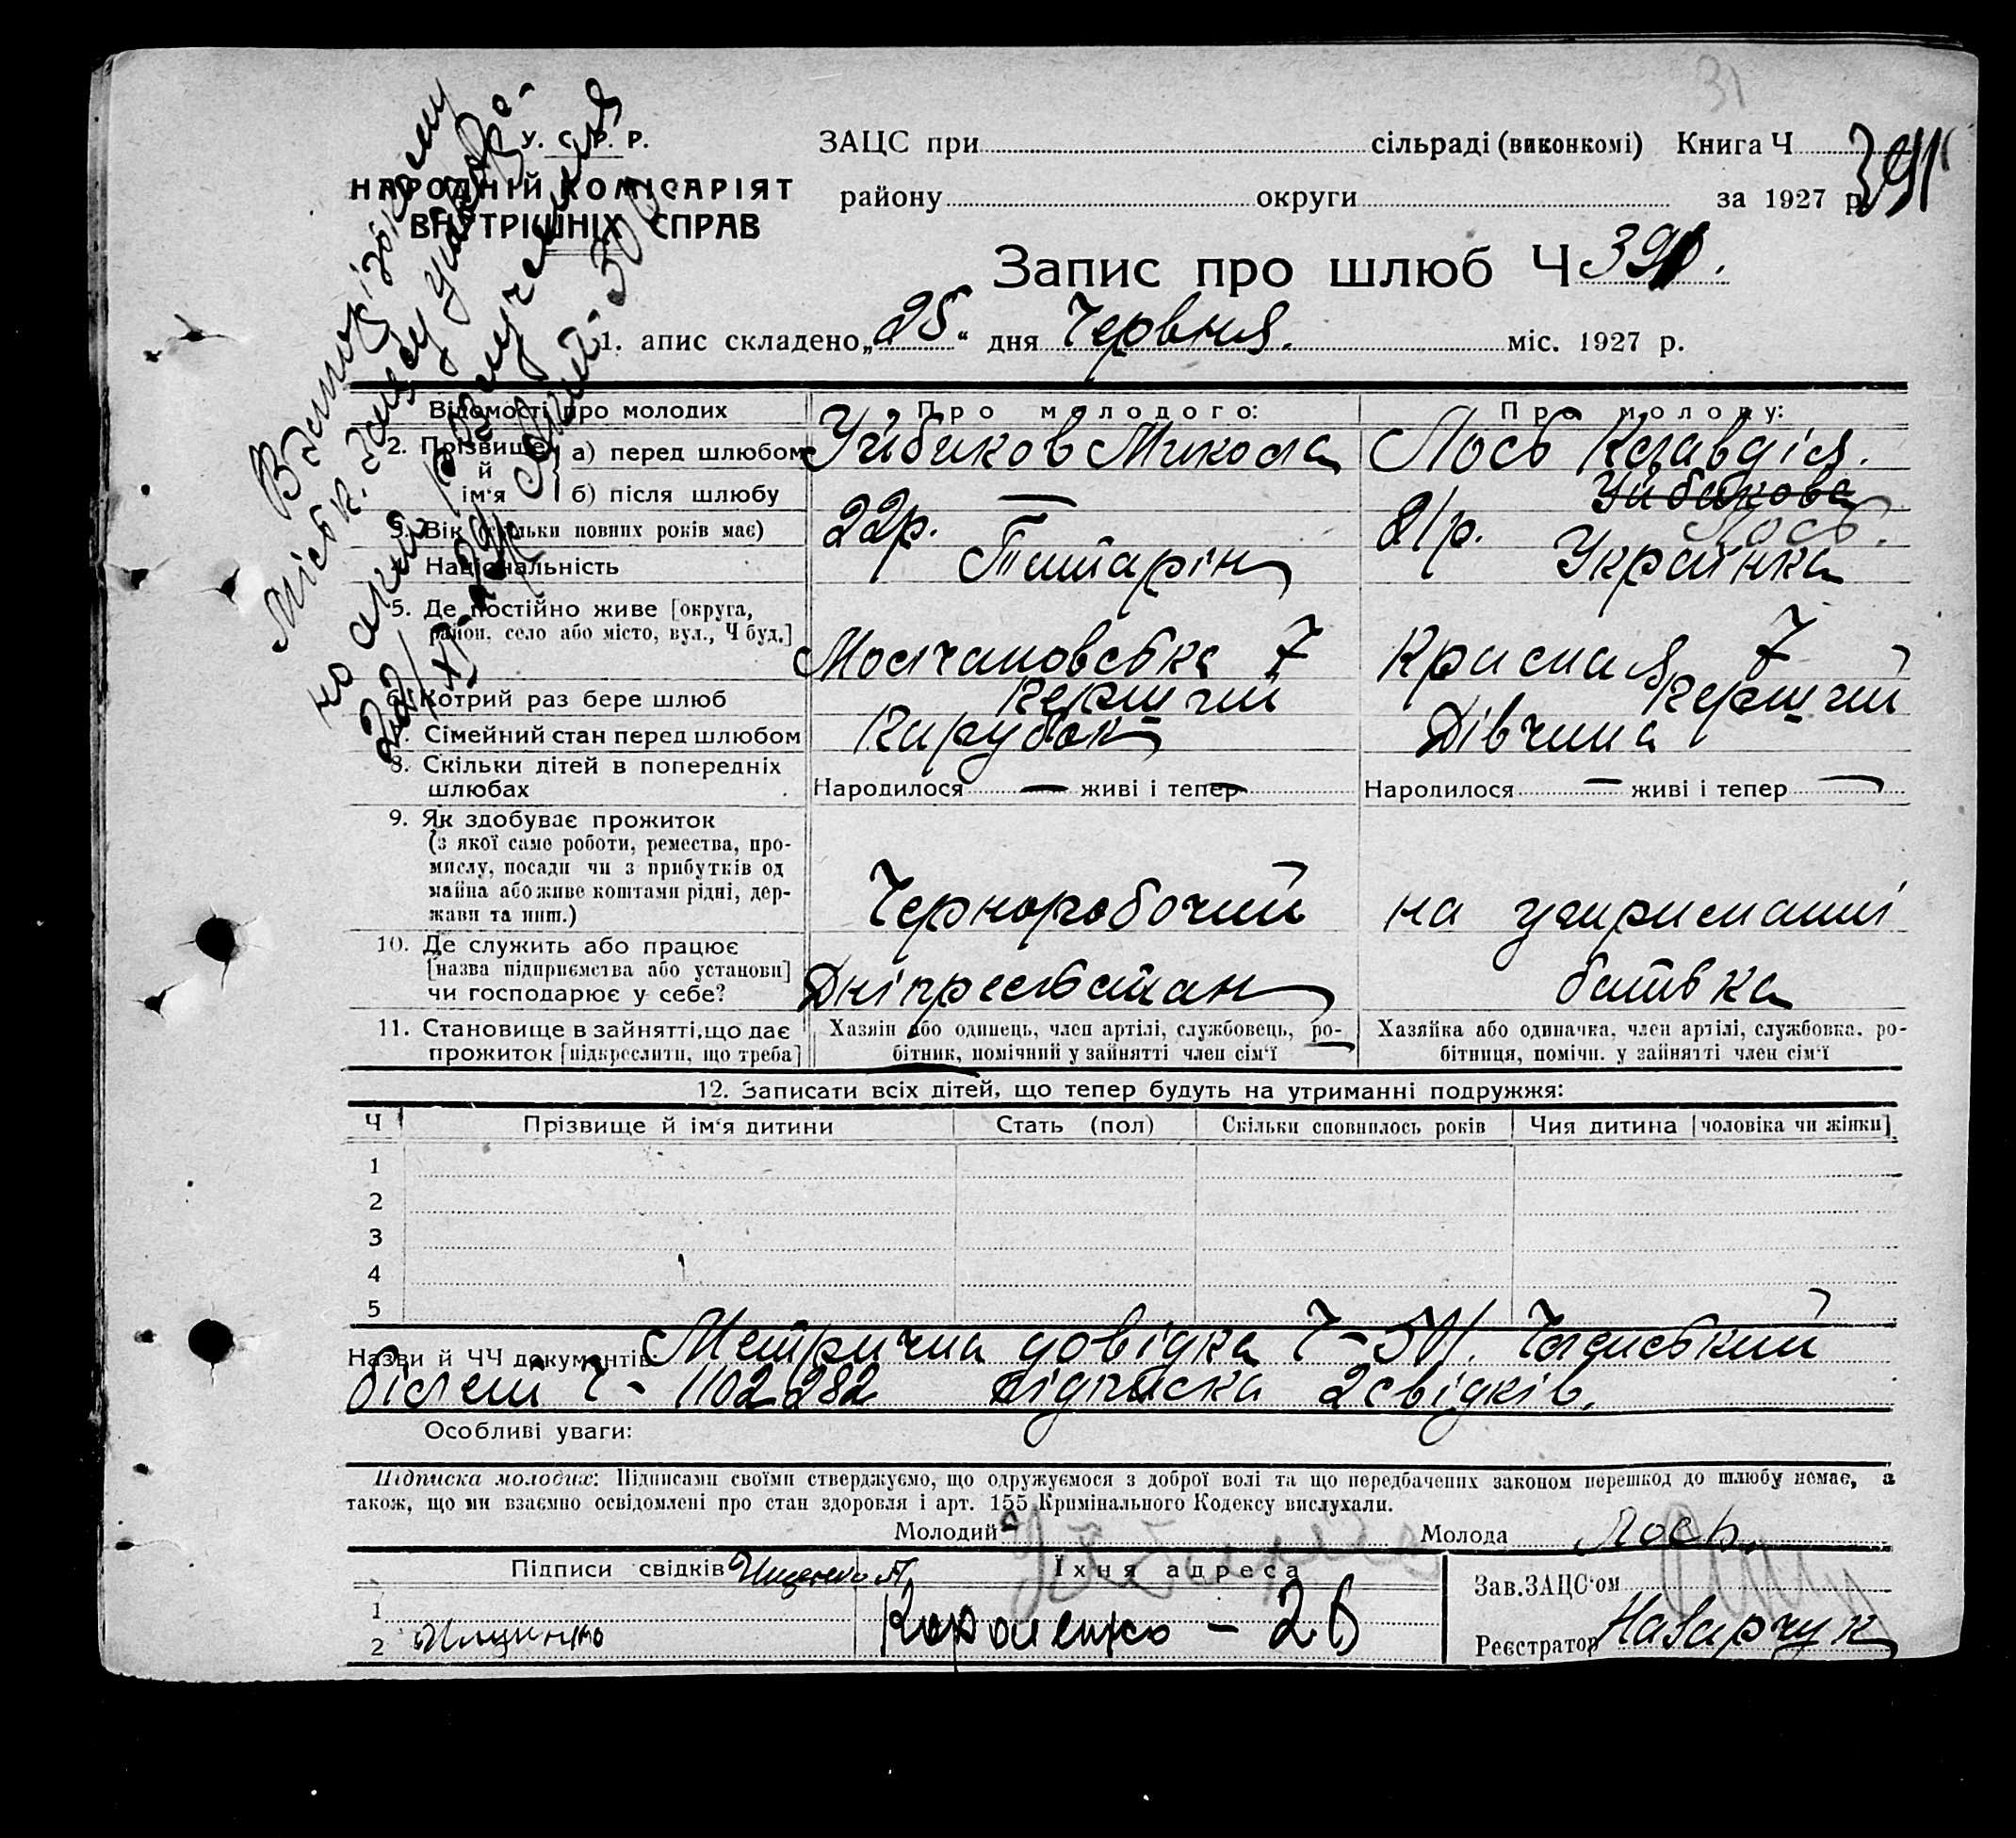 31
У. С. Р. Р.
НАРОДНІЙ КОМІСАРІЯТ
ВНУТРІШНІХ СПРАВ
ЗАЦС при сільраді (виконкомі) Книга Ч 391
району округи за 1927 р.
Запис про шлюб Ч 391.
1. апис складено „25“ дня Червня. міс. 1927 р.
Відомості про молодих Про молодого: Про молоду:
2. Прізвище й ім'я а) перед шлюбом Уйбиков Микола Лось Клавдія.
б) після шлюбу — Уйбикова Лось.
3. Вік (скільки повних років має) 22р. 21р.
4. Національність Татарін Українка
5. Де постійно живе [округа,
район, село або місто, вул., Ч буд.]
Молчановська 7 Красная 7
6. Котрий раз бере шлюб Перший Перший
7. Сімейний стан перед шлюбом Парубок Дівчина
8. Скільки дітей в попередніх
шлюбах Народилося — живі і тепер — Народилося — живі і тепер —
9. Як здобуває прожиток
(з якої саме роботи, ремества, про-
мислу, посади чи з прибутків од
майна або живе коштами рідні, дер-
жави та инш.) Черноробочий на утриманні
10. Де служить або працює
[назва підприємства або установи]
чи господарює у себе? батька
11. Становище в зайнятті, що дає
прожиток [підкреслити, що треба]
Хазяїн або одинець, член артілі, службовець, ро-
бітник, помічний у зайнятті член сім'ї
Хазяйка або одиначка, член артілі, службовка, ро-
бітниця, помічн. у зайнятті член сім'ї
12. Записати всіх дітей, що тепер будуть на утриманні подружжя:
Ч Прізвище й ім'я дитини Стать (пол) Скільки сповнилось років Чия дитина [чоловіка чи жінки]
1
2
3
4
5
Назви й ЧЧ документів: Метрична довідка Ч-
білет Ч- 1102282 підписка 2 свідків.
Особливі уваги:
Підписка молодих: Підписами своїми стверджуємо, що одружуємося з доброї волі та що передбачених законом перешкод до шлюбу немає, а
також, що ми взаємно освідомлені про стан здоровля і арт. 155 Кримінального Кодексу вислухали.
Молодий Молода Лось.
Підписи свідків Їхня адреса Зав. ЗАЦС'ом
1
2 Короленко - 26 Реєстратор Назарчук